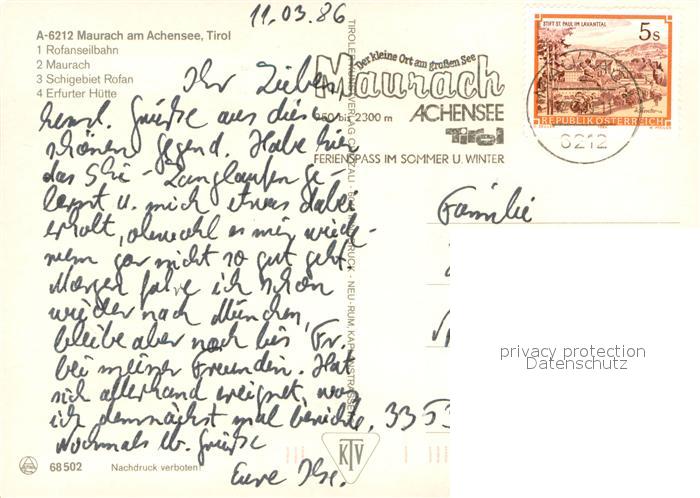 11.03.86
A-6212 Maurach am Achensee, Tirol
1 Rofanseilbahn
2 Maurach
3 Schigebiet Rofan
4 Erfurter Hütte
Ihr Lieben
herzl. Grüße aus dieser
schönen Gegend. Habe hier
das Ski-Langlaufen ge-
lernt u. mich etwas dabei
erholt, obwohl es mir wiede-
rum gar nicht so gut geht.
Morgen fahre ich schon
wieder nach München,
bleibe aber noch bis Fr.
bei meiner Freundin. Hat
sich allerhand ereignet, wo
ich demnächst mal berichte.
Nochmals lb. Grüße
Eure Ilse.
68 502 Nachdruck verboten!
TIROLER KUNSTVERLAG CHIZZALI
NEU-RUM, KAPLANSTRASSE
KTV
Der kleine Ort am großen See
Maurach
950 bis 2300 m ACHENSEE
Tirol
FERIENSPASS IM SOMMER U. WINTER
STIFT ST. PAUL IM LAVANTTAL
5 S
REPUBLIK ÖSTERREICH
6212
Familie
3353
privacy protection
Datenschutz